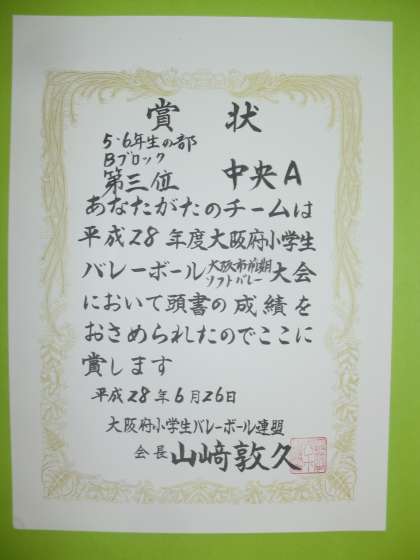 賞状
5・6年生の部
Bブロック
第三位 中央A
あなたがたのチームは
平成28年度大阪府小学生
バレーボール大阪市前期ソフトバレー大会
において頭書の成績を
おさめられたのでここに
賞します
平成28年6月26日
大阪府小学生バレーボール連盟
会長 山﨑敦久